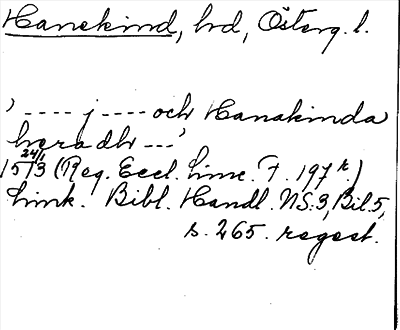 Hanekind, hrd, Österg. l.
' ---- j ---- och Hanakinda
hæradh ---'
24/1
1513 (Reg. Eccl. Linc. F. 197 r.)
Link. Bibl. Handl. NS:3, Bil. 5,
s. 265. regest.